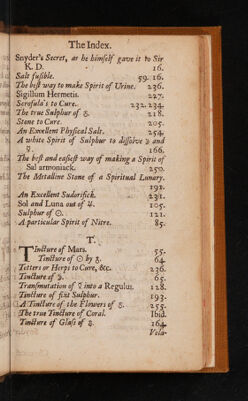 The Index.
Snyder's Secret, as he himself gave it to Sir
K. D. 16.
Salt fusible. 59. 16.
The best way to make Spirit of Urine. 236.
Sigillum Hermetis. 227.
Scrofula's to Cure. 232. 234.
The true Sulphur of ♁. 218.
Stone to Cure. 205.
An Excellent Physical Salt. 254.
A white Spirit of Sulphur to dissolve and
166.
The best and easiest way of making a Spirit of
Sal armoniack. 250.
The Metalline Stone of a Spiritual Lunary.
191.
An Excellent Sudorifick. 231.
Sol and Luna out of ♃. 105.
Sulphur of ☉. 121.
A particular Spirit of Nitre. 85.
T.
Tincture of Mars. 55.
Tincture of ☉ by ♁. 64.
Tetters or Herps to Cure, &c. 236.
Tincture of 65.
Transmutation of into a Regulus. 128.
Tincture of fixt Sulphur. 193.
A Tincture of the Flowers of ♁. 255.
The true Tincture of Coral. Ibid.
Tincture of Glass of ♁. 164.